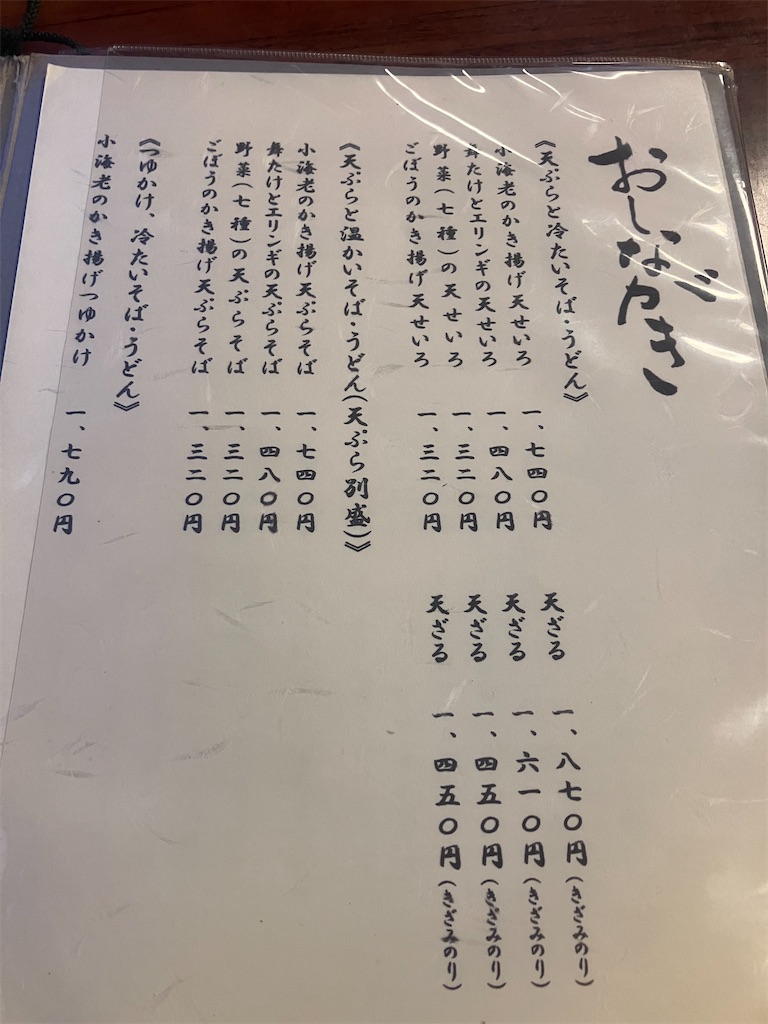 おしながき
《天ぷらと冷たいそば・うどん》
小海老のかき揚げ天せいろ 一、七四〇円 天ざる 一、八七〇円(きざみのり)
舞たけとエリンギの天せいろ 一、四八〇円 天ざる 一、六一〇円(きざみのり)
野菜(七種)の天せいろ 一、三二〇円 天ざる 一、四五〇円(きざみのり)
ごぼうのかき揚げ天せいろ 一、三二〇円 天ざる 一、四五〇円(きざみのり)
《天ぷらと温かいそば・うどん(天ぷら別盛)》
小海老のかき揚げ天ぷらそば 一、七四〇円
舞たけとエリンギの天ぷらそば 一、四八〇円
野菜(七種)の天ぷらそば 一、三二〇円
ごぼうのかき揚げ天ぷらそば 一、三二〇円
《つゆかけ、冷たいそば・うどん》
小海老のかき揚げつゆかけ 一、七九〇円